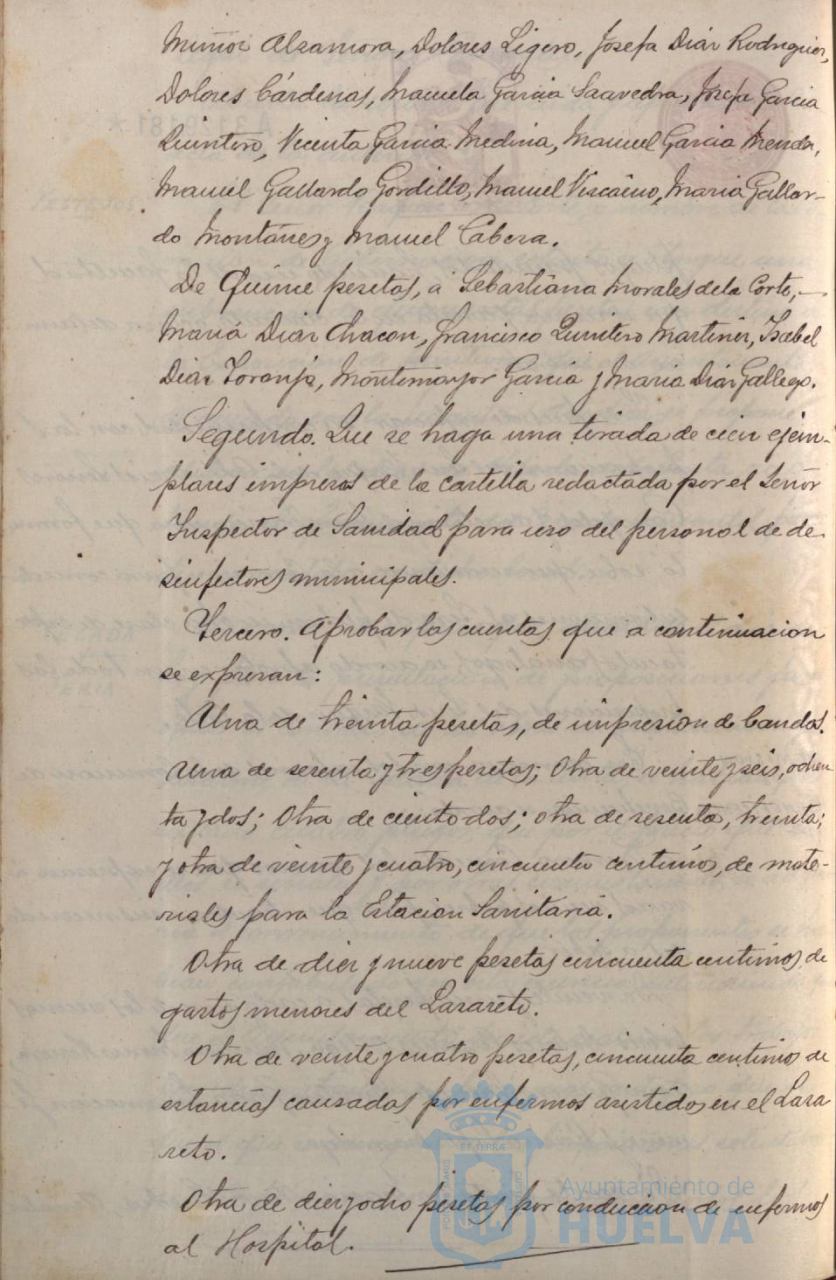 Muñoz Alzamora, Dolores Ligero, Josefa Diáz Rodriguez,
Dolores Cárdenas, Manuela Garcia Saavedra, Josefa Garcia
Quintero, Vicenta Garcia Medina, Manuel Garcia Menda,
Manuel Gallardo Gordillo, Manuel Viscáino, Maria Gallar-
do Montánes y Manuel Cabeza.
De Quince pesetas, á Sebastiana Morales de la Corte,—
Mariá Diáz Chacon, Francisco Quintero Martinez, Isabel
Diáz Toronjá, Montemayor Garcia y Maria Diáz Gallego.
Segundo. Que se haga una tirada de cien ejem-
plares impresos de la cartilla redactada por el Señor
Inspector de Sanidad para uso del personal de de-
sinfectores municipales.
Tercero. Aprobar las cuentas que á continuacion
se expresan:
Una de treinta pesetas, de impresion de bandos.
Una de sesenta y tres pesetas; Otra de veinte y seis, ochen
ta y dos; Otra de ciento dos; otra de sesenta, treinta;
y otra de veinte y cuatro, cincuenta centimos, de mate-
riales para la Estacion Sanitariá.
Otra de diez y nueve pesetas cincuenta centimos de
gastos menores del Lazareto.
Otra de veinte y cuatro pesetas, cincuenta centimos de
estanciás causadas por enfermos asistidos en el Laza
reto.
Otra de diez y ocho pesetas por conduccion de enfermos
al Hospital.
Ayuntamiento de
HUELVA